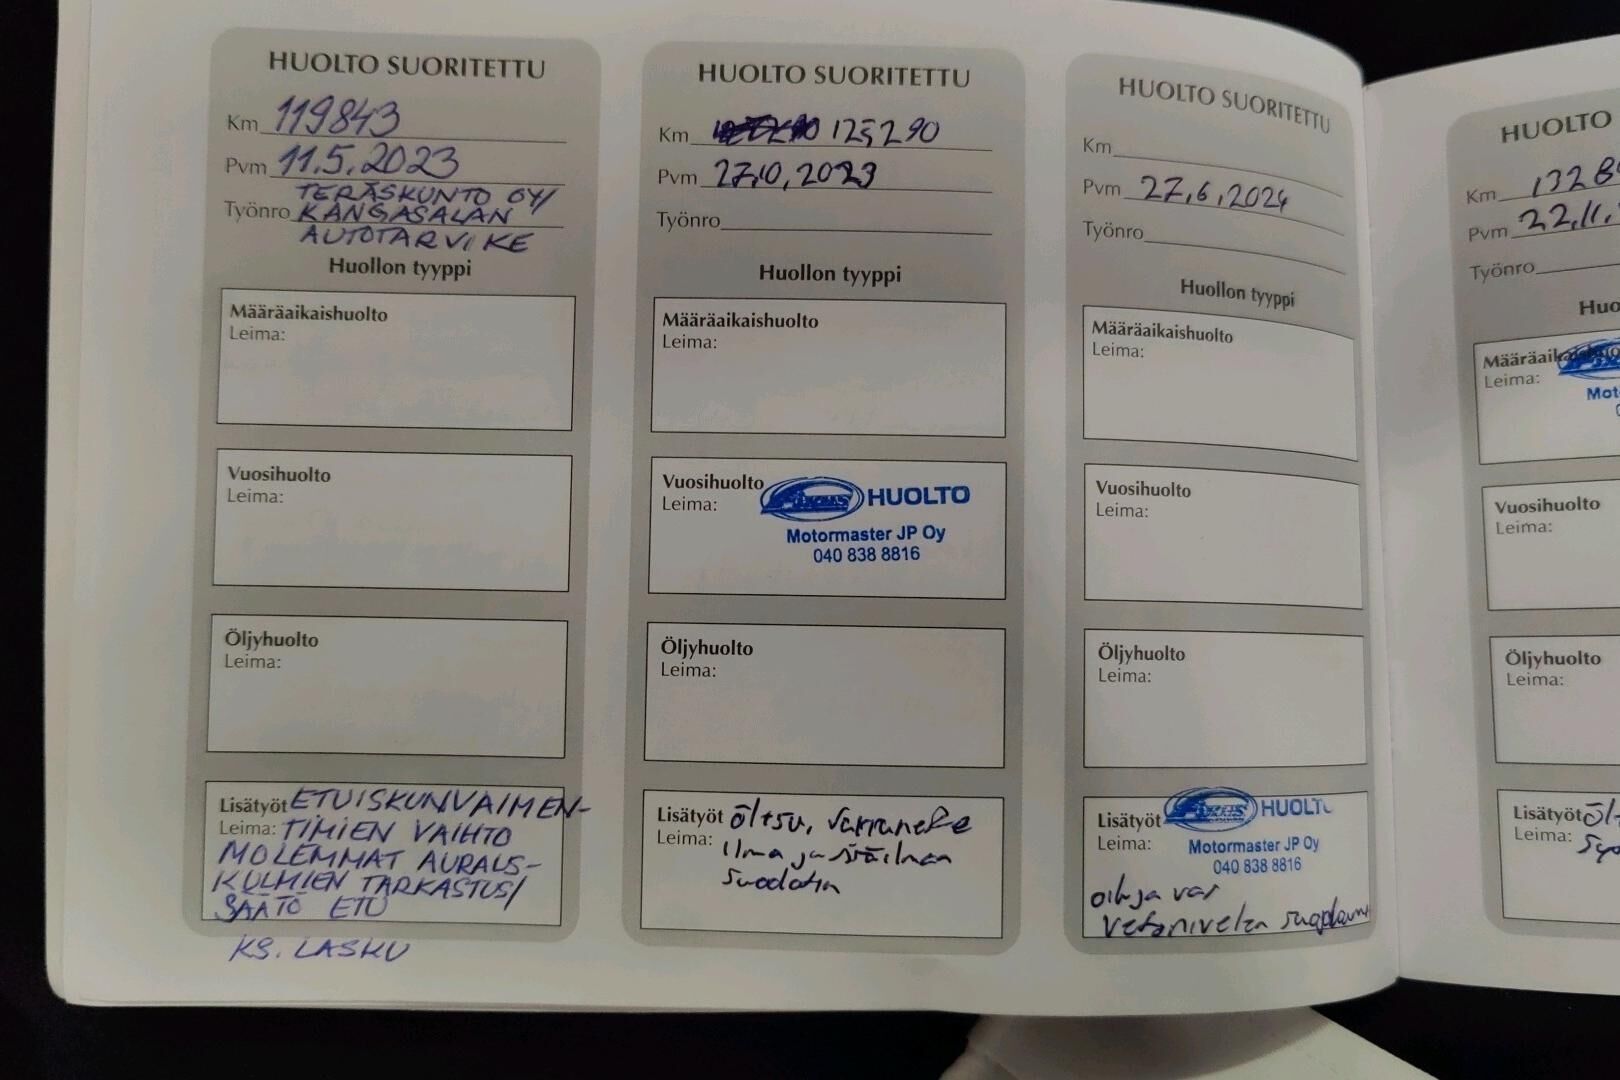 HUOLTO SUORITETTU
Km 119843
Pvm 11.5.2023
TERÄSKUNTO OY/
Työnro KANGASALAN
AUTOTARVIKE
Huollon tyyppi
Määräaikaishuolto
Leima:
Vuosihuolto
Leima:
Öljyhuolto
Leima:
Lisätyöt ETUISKUNVAIMEN-
Leima: TIMIEN VAIHTO
MOLEMMAT AURAUS-
KULMIEN TARKASTUS/
SÄÄTÖ ETU
KS. LASKU
HUOLTO SUORITETTU
Km 125290
Pvm 27.10.2023
Työnro
Huollon tyyppi
Määräaikaishuolto
Leima:
Vuosihuolto
Leima:
HUOLTO
Motormaster JP Oy
040 838 8816
Öljyhuolto
Leima:
Lisätyöt
Leima: Ilma ja sisäilman
suodatin
HUOLTO SUORITETTU
Km
Pvm 27.6.2024
Työnro
Huollon tyyppi
Määräaikaishuolto
Leima:
Vuosihuolto
Leima:
Öljyhuolto
Leima:
Lisätyöt
HUOLTO
Leima: Motormaster JP Oy
040 838 8816
HUOLTO
Km 1328
Pvm 22.11.
Työnro
Huo
Leima:
Mot
Vuosihuolto
Leima:
Öljyhuolto
Leima:
Lisätyöt
Leima: